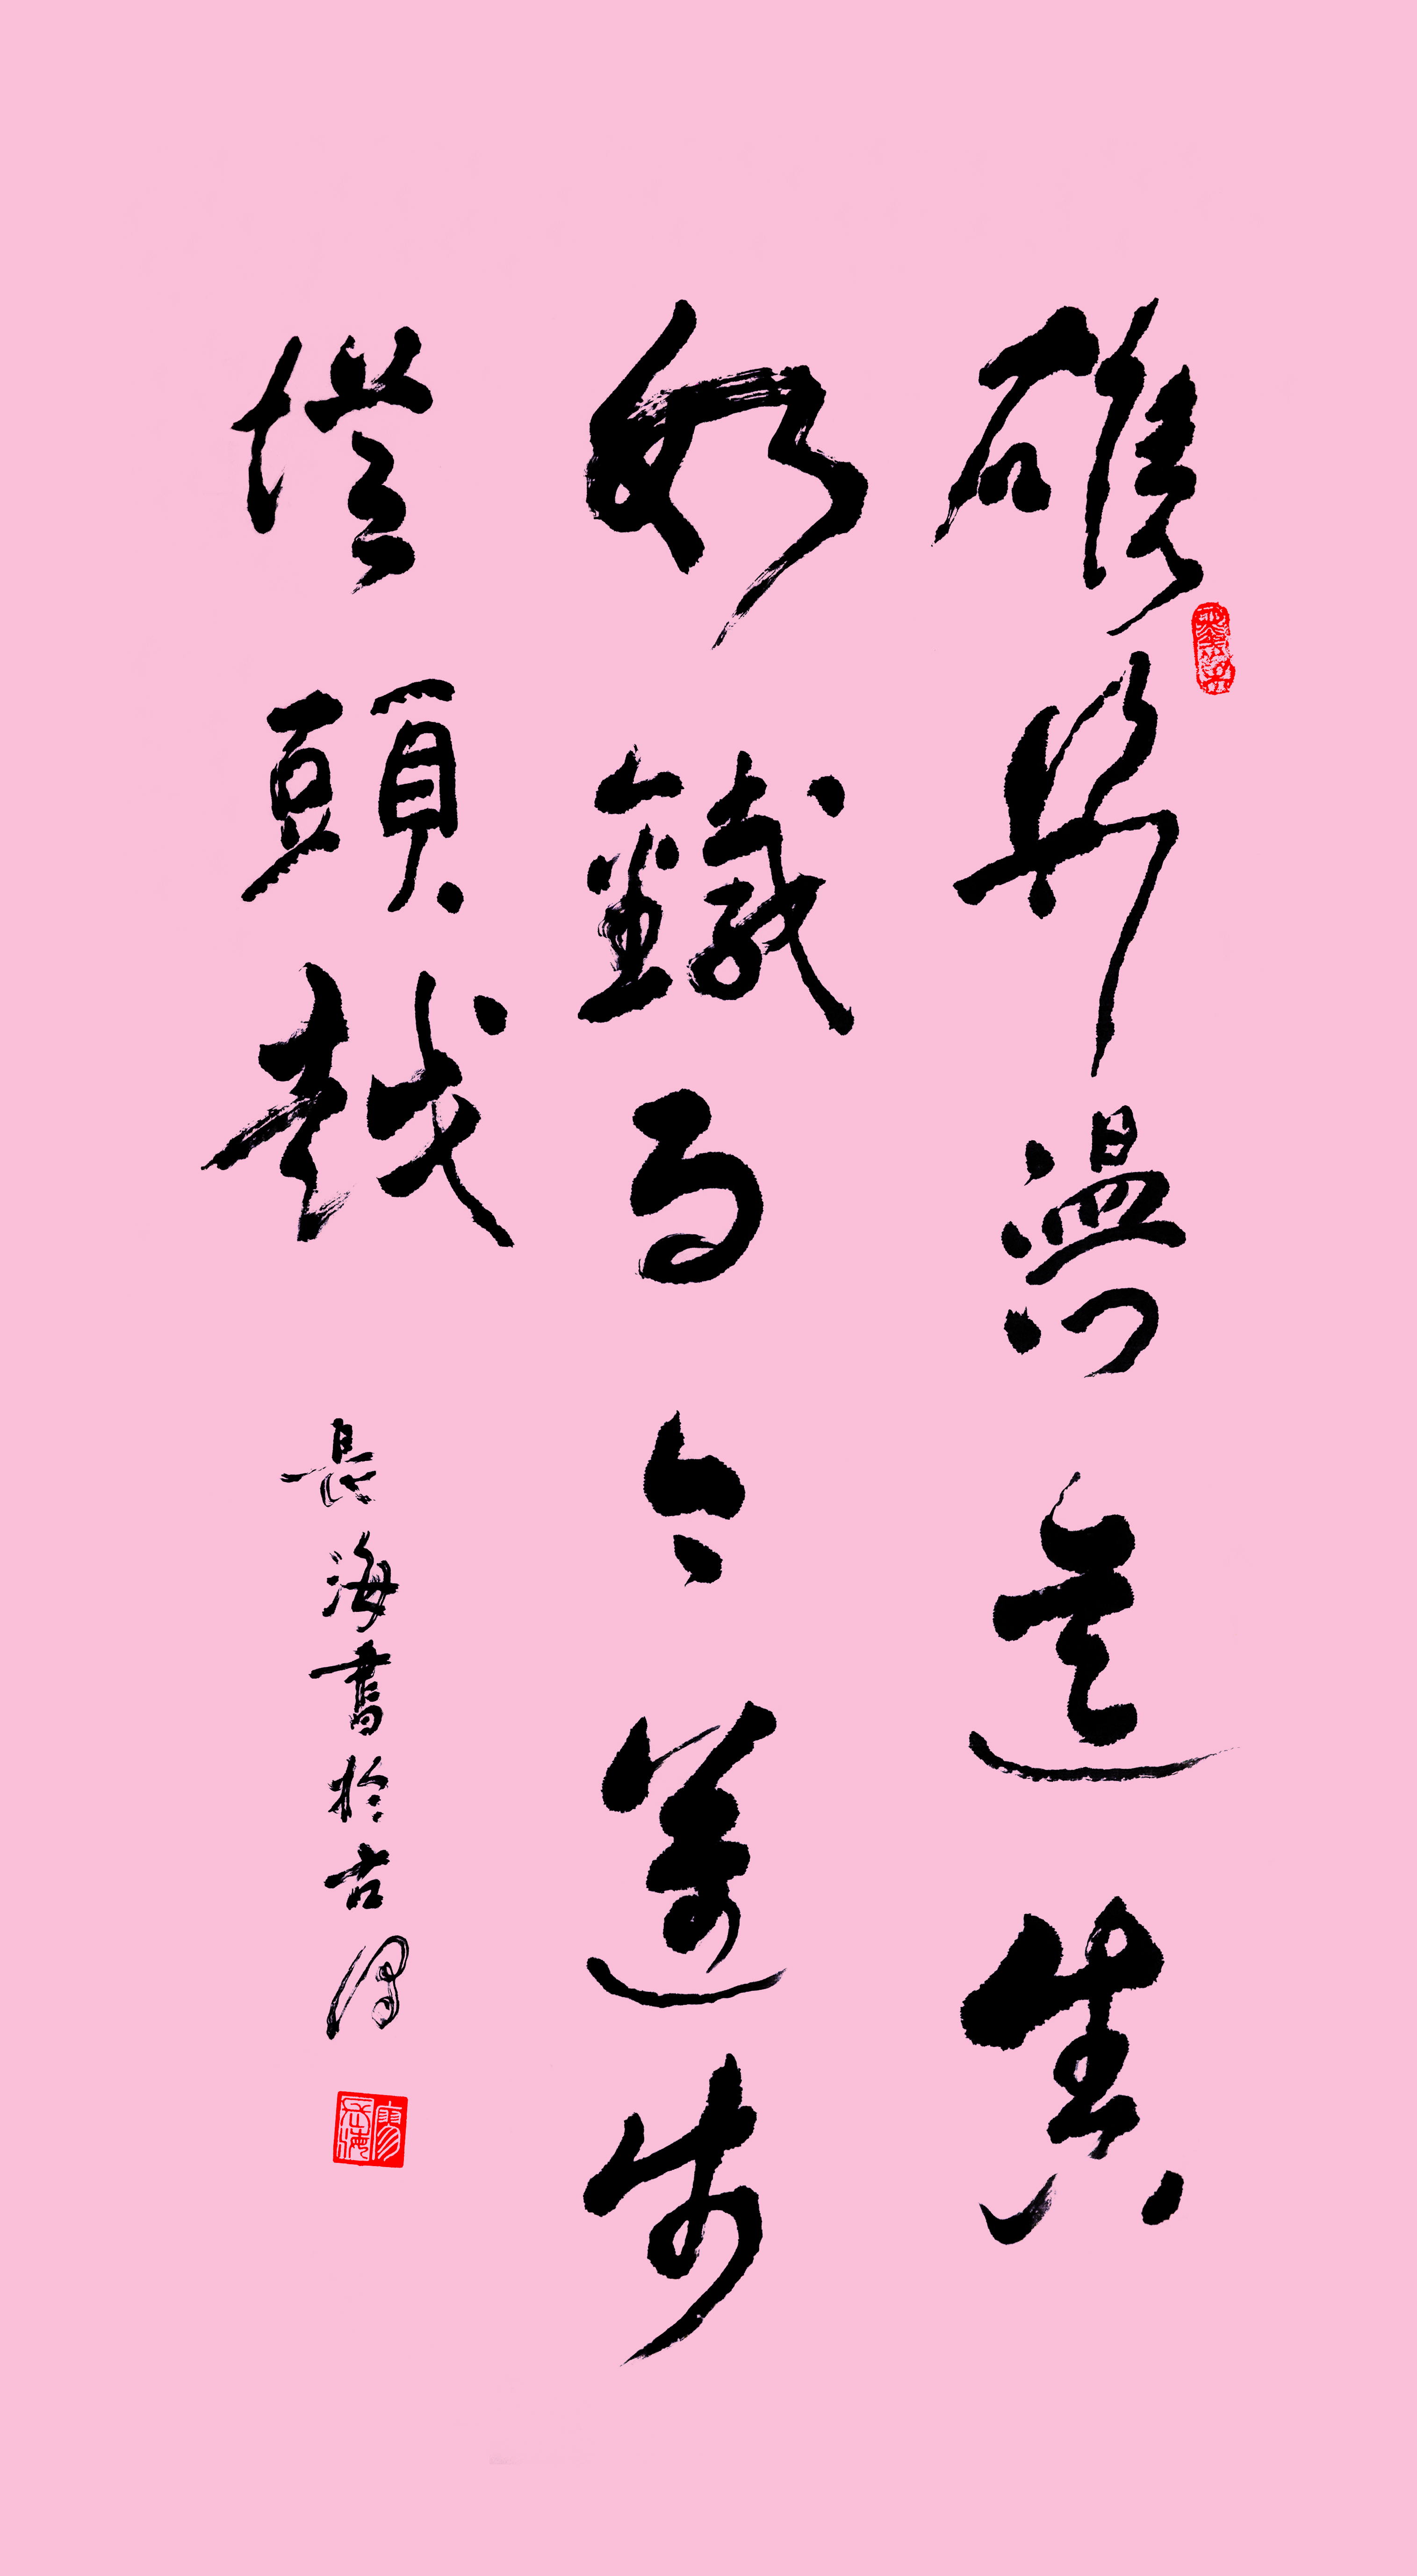 雄關漫道真
如鐵而今邁步
從頭越
長海書於古